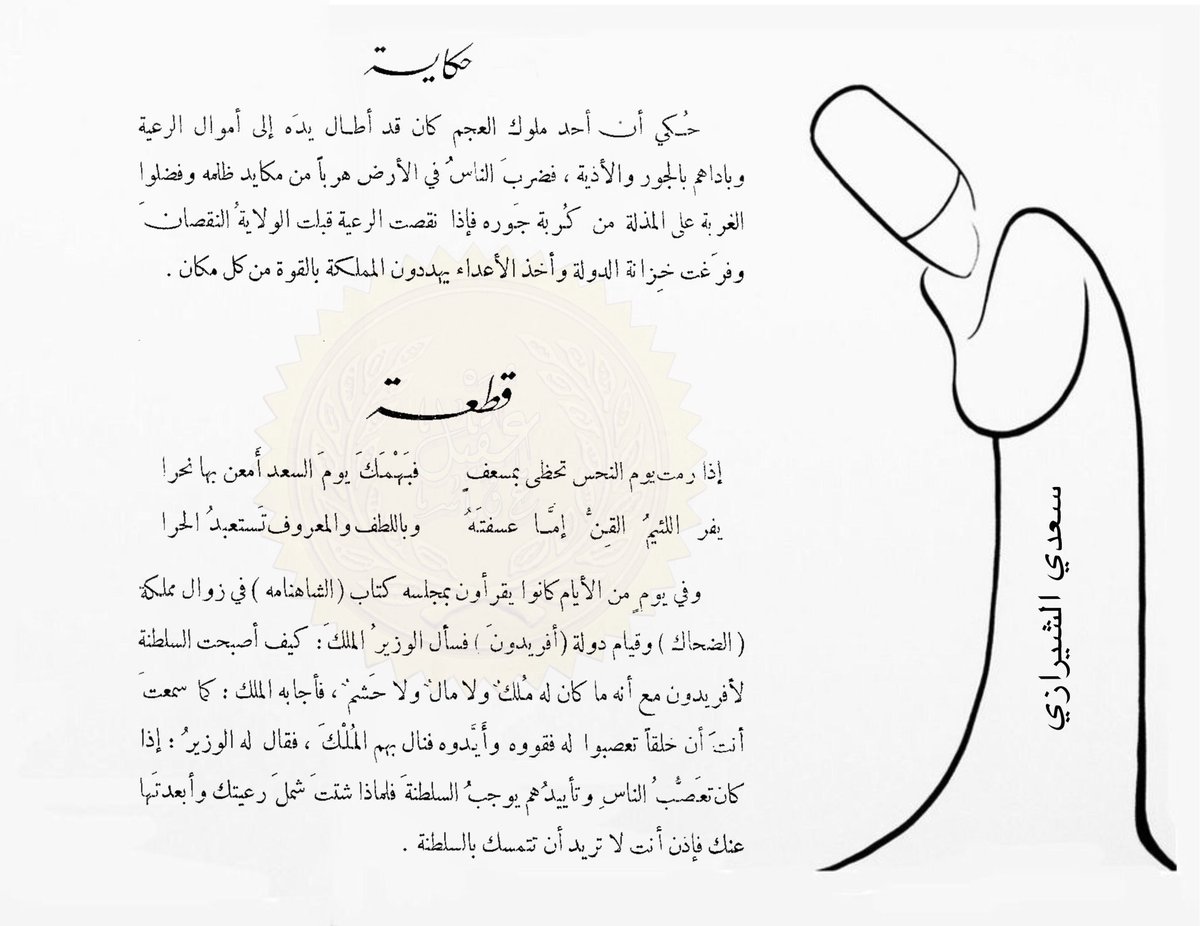 حكاية
حُكي أن أحد ملوك العجم كان قد أطال يدَه إلى أموال الرعية
وباداهم بالجور والأذية ، فضربَ الناسُ في الأرض هرباً من مكايد ظلمه وفضلوا
الغربة على المذلة من كُربة جَوره فإذا نقصت الرعية قبلت الولايةُ النقصانَ
وفرَغت خِزانة الدولة وأخذ الأعداء يهددون المملكة بالقوة من كل مكان .
قطعة
إذا رمت يوم النحس تحظى بمسعفٍ فبَهْمَكَ يومَ السعد أَمعن بها نحرا
يفر اللئيمُ القنُّ إمَّا عسفتَهُ وباللطف والمعروف تَستعبدُ الحرا
وفي يومٍ من الأيام كانوا يقرأون بمجلسه كتاب ( الشاهنامه ) في زوال مملكة
( الضحاك ) وقيام دولة ( أفريدونَ ) فسأل الوزيرُ الملكَ : كيف أصبحت السلطنة
لأفريدون مع أنه ما كان له مُلكٌ ولا مالٌ ولا حَشمٌ ، فأجابه الملك : كما سمعتَ
أنتَ أن خلقاً تعصبوا له فقووه وأَيَّدوه فنال بهم المُلْكَ ، فقال له الوزيرُ : إذا
كان تعَصُّبُ الناسِ وتأييدُهم يوجبُ السلطنةَ فلماذا شتتَ شملَ رعيتك وأبعدتَها
عنك فإذن أنت لا تريد أن تتمسك بالسلطنة .
سعدي الشيرازي